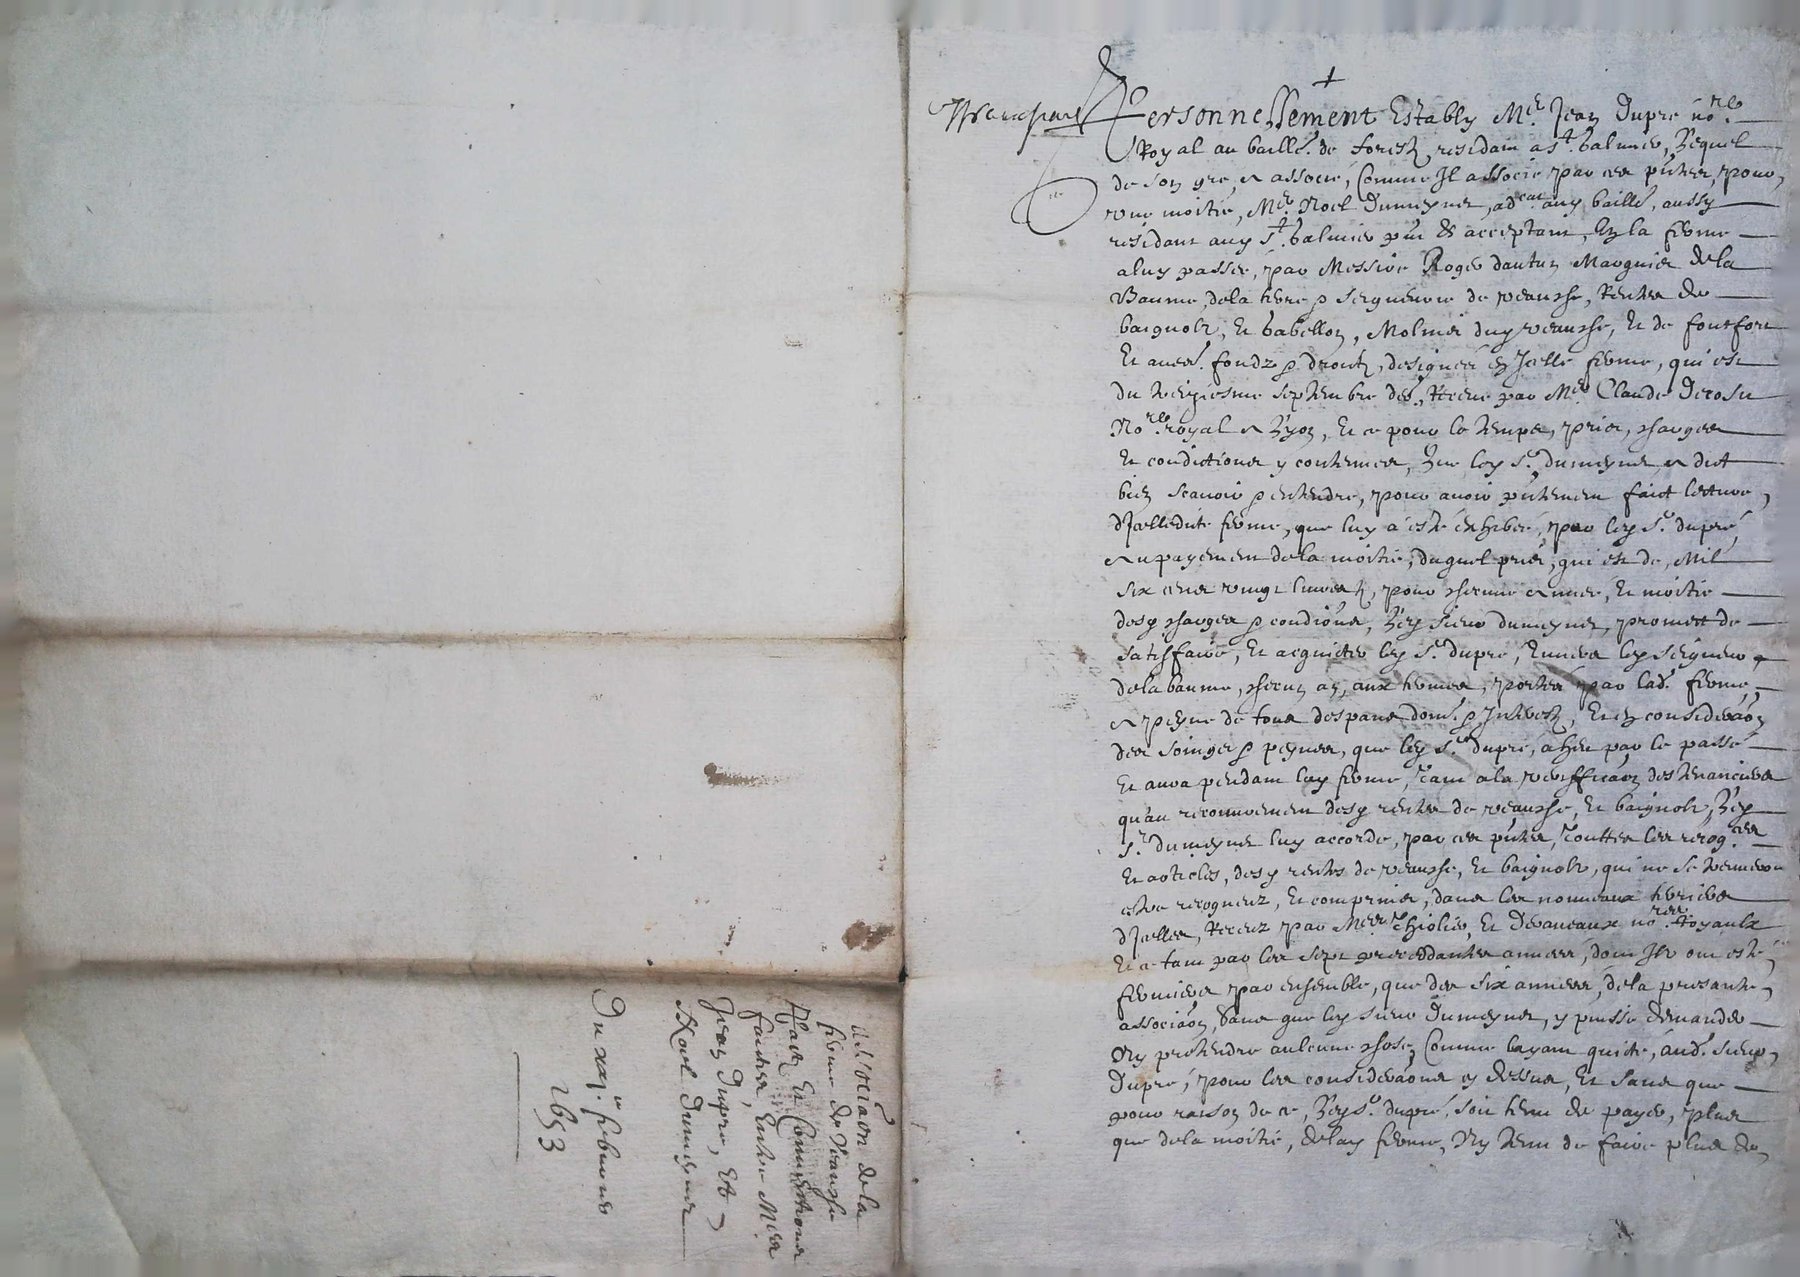 ✝
Personnellement Estably Me. Jean Dupré no.re
Royal au baille. de forestz residant a St. Galmier, Lequel
de son gré, a associé, Comme Il associe par ces pntes, pour
une moitie, Me. Noel Dumeynet, adcat auy baille, aussy
residant auy St. Galmier pnt & acceptant, En la ferme
a luy passée, par Messire Roger dautun Marquis dela
Baume, dela terre & seigneurie de veausche, Rentes de
baignolz, Et babellon, Molines duy veausche, Et de fontfort
Et autres fondz & droictz, designés en Icelle ferme, qui est
du septembre der. Receue par Me. Claude Decosu
No.re royal a Lyon, Et ce pour le temps, prix, charges
Et condictions y contenues, Que ley Sr. dumeynet a dict
bien scavoir & entendre, pour avoir pntement faict lecture,
d'Icelledite ferme, que luy a esté exhibée, par ley Sr. dupré,
Au payement dela moitie, duquel prix, qui est de, Mil
six cens vingt livres tz, pour chascune annee, Et moitie
desy charges & condiōns, Ley sieur dumeynet, promett de
satisfaire, Et acquicter ley Sr. dupré, Envers ley seigneur
dela baume, chacun an, aux termes, portes par lad. ferme,
A peyne de tous despans dom. & Interestz, Et en consideraōn
des soinges & peynes, que ley Sr. dupré, a heu par le passé
Et aura pendant lay ferme, Tant a la veriffica͞on des tenanciers
qu'au recouvrement desy rentes de veausche, Et baignolz, Ley
Sr. dumeynet luy accorde, par ces pntes, Touttes les recog.ces
Et articles, desy rentes de veausche, Et baignolz, qui ne se treuveront
estre recogneuz, Et comprins, dans les nouveaux terriers
d'Icelles, Receuz par Mes. Thiolier, Et Devaneaux no.res Royaulx
Et a tant par les sept precedantes annees, dont Ilz ont esté,
fermiers par ensemble, que des six annees, dela presante
associaōn, Sans que ley sieur Dumeynet, y puisse demander
Ny prétendre aulcune chose, Comme layant quicté, aud. sieur,
Dupré, pour les consideraōns cy dessus, Et sans que
pour raison de ce, Ley Sr. dupré, soit tenu de payer, plus
que dela moitié, delay ferme, Ny tenu de faire plus de
associaōn dela
ferme de Veausche
Et Conventions
faictes, Entre Mes
Jean Dupré, Et
Noel Dumeynet
Du xxje. febvrier
1653